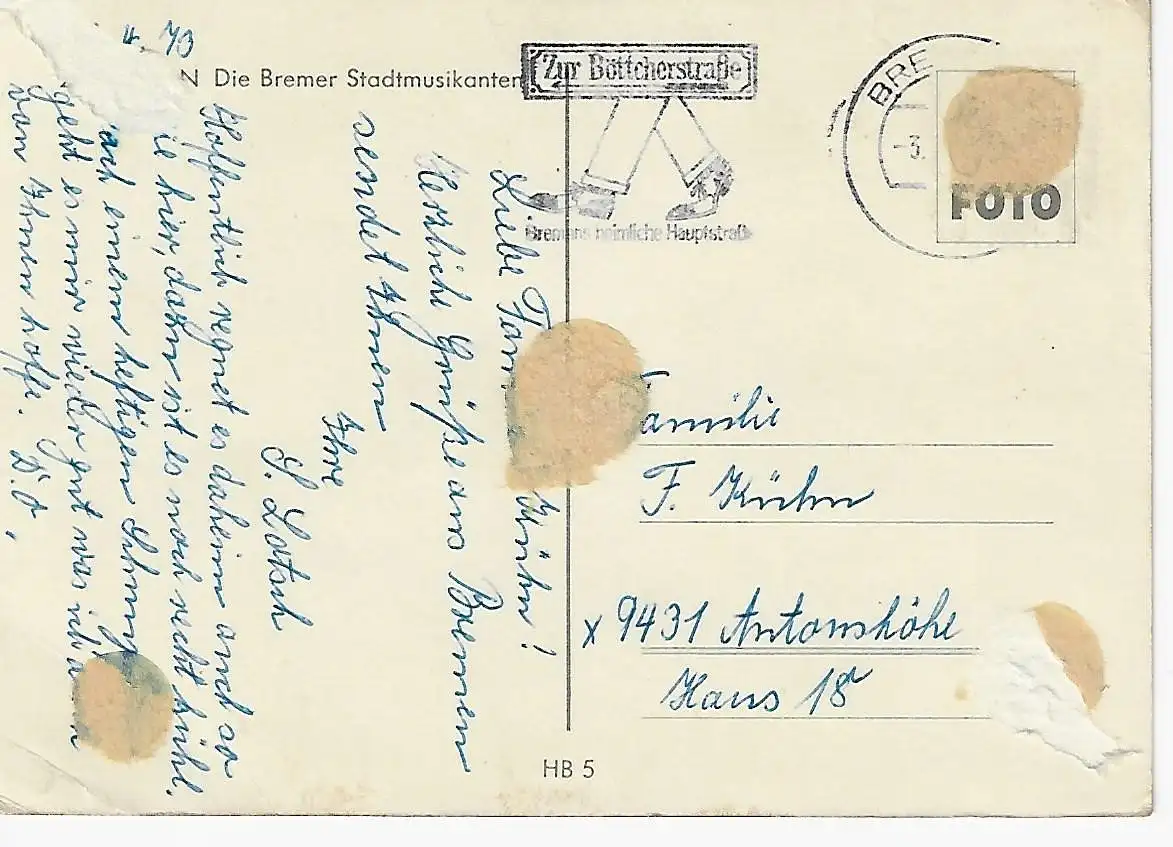 4. 73
N Die Bremer Stadtmusikanten
Zur Böttcherstraße
Bremens heimliche Hauptstraße
BRE
-3.
FOTO
Liebe Fam Kühn!
Herzliche Grüße aus Bremen
sendet Ihnen
Ihre
S. Lotsch
Hoffentlich regnet es daheim auch so
wie hier, dann ist es noch recht kühl.
einem heftigen
geht es mir wieder gut was ich
von Ihnen hoffe. D.O,
Familie
F. Kühn
x 9431 Antonshöhe
Haus 18
HB 5